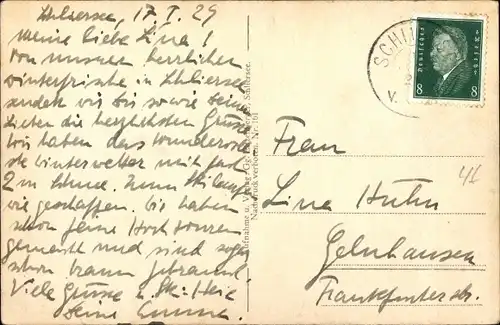 Schliersee, 17. I. 29
Meine liebe Lina!
Von unserer herrlichen
Winterfrische in Schliersee
senden wir Dir sowie Deinen
Lieben die herzlichsten Grüsse
Wir haben das wundervoll-
ste Winterwetter mit fast
2 m Schnee. Zum Skilauf
wie geschaffen. Wir haben
schon feine Hochtouren
gemacht und sind sogar
schon braun gebrannt.
Viele Grüsse u. Ski-Heil
Deine
Nachdruck verboten. Nr. 161
SCHLI
Deutsches Reich
8 8
Frau
Lina Huhn
Gelnhausen
Frankfurterstr.